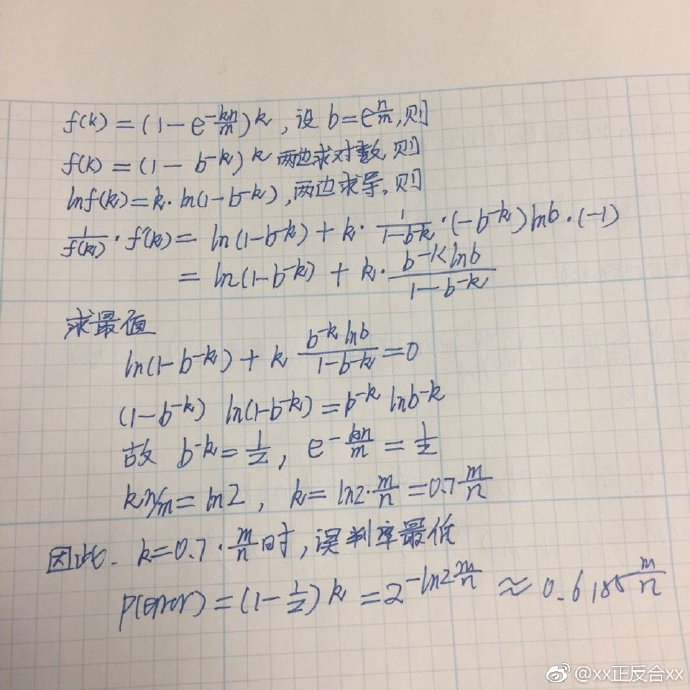 f(k) = (1 - e^{-\frac{kn}{m}})^k, 设 b = e^{\frac{n}{m}}, 则
f(k) = (1 - b^{-k})^k 两边求对数, 则
ln f(k) = k · ln(1 - b^{-k}), 两边求导, 则
\frac{1}{f(k)} · f'(k) = ln(1 - b^{-k}) + k · \frac{1}{1 - b^{-k}} · (-b^{-k}) ln b · (-1)
= ln(1 - b^{-k}) + k · \frac{b^{-k} ln b}{1 - b^{-k}}
求最值
ln(1 - b^{-k}) + k \frac{b^{-k} ln b}{1 - b^{-k}} = 0
(1 - b^{-k}) ln(1 - b^{-k}) = b^{-k} ln b^{-k}
故 b^{-k} = \frac{1}{2}, e^{-\frac{kn}{m}} = \frac{1}{2}
kn/m = ln2, k = ln2 · \frac{m}{n} = 0.7 \frac{m}{n}
因此. k = 0.7 · \frac{m}{n} 时, 误判率最低
P(error) = (1 - \frac{1}{2})^k = 2^{-ln2 \frac{m}{n}} ≈ 0.6185^{\frac{m}{n}}
@xx正反合xx